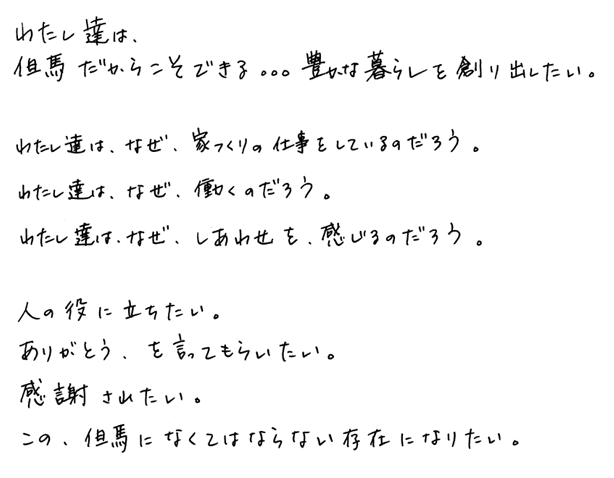 わたし達は、
但馬だからこそできる。。。豊かな暮らしを創り出したい。
わたし達は、なぜ、家づくりの仕事をしているのだろう。
わたし達は、なぜ、働くのだろう。
わたし達は、なぜ、しあわせを、感じるのだろう。
人の役に立ちたい。
ありがとう、を言ってもらいたい。
感謝されたい。
この、但馬になくてはならない存在になりたい。